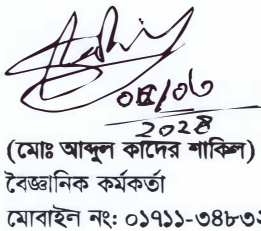 2028
(মোঃ আব্দুল কাদের শাকিল)
বৈজ্ঞানিক কর্মকর্তা
মোবাইল নং: ০১৭১১-৩৪৮৩২